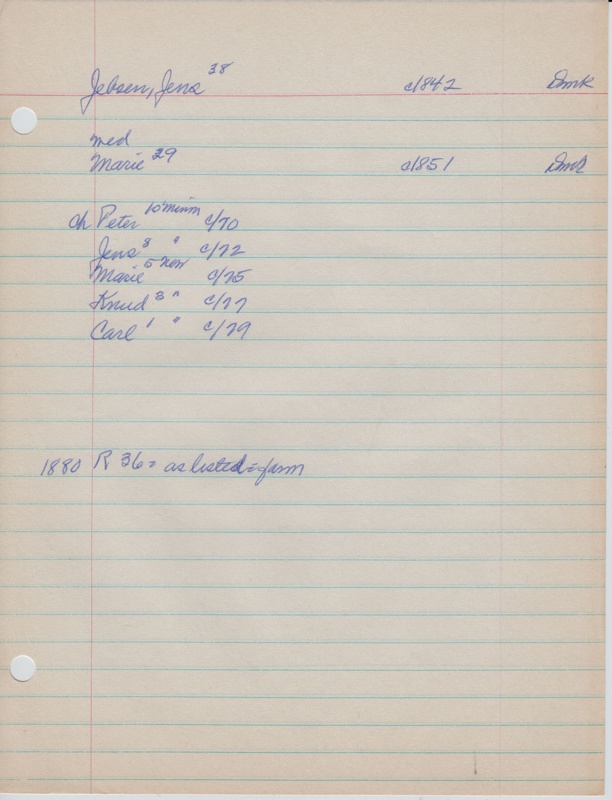 Jebsen, Jens 38 c/842 Dmk
med
Marie 29 c/851 Dmk
ch Peter 10 Minn c/70
Jens 8 " c/72
Marie 5 c/75
Knud 3 " c/77
Carl 1 " c/79
1880 R 36 = as listed = farm